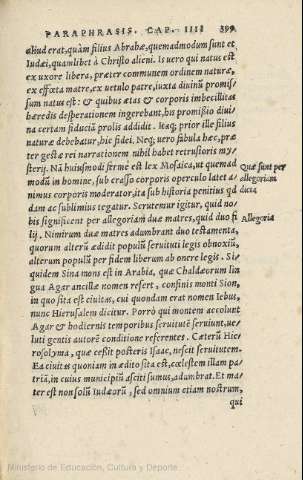 PARAPHRASIS. CAP. IIII 399
aliud erat, quàm filius Abrahæ, quemadmodum sunt et
Iudæi, quamlibet à Christo alieni. Is uero qui natus est
ex uxore libera, præter communem ordinem naturæ,
ex effœta matre, ex uetulo patre, iuxta diuinũ promis
sum natus est: & quibus ætas & corporis imbecillitas
hæredis desperationem ingerebant, his promissio diui
na certam fiduciã prolis addidit. Itaq; prior ille filius
naturæ debebatur, hic fidei. Neq; uero fibula hæc, præ
ter gestæ rei narrationem nihil habet retrusioris my=
sterij. Nã huiusmodi ferme est lex Mosaica, ut quemad
modũ in homine, sub crasso corporis operculo latet a=
nimus corporis moderator, ita sub historia penitius qd
dam ac sublimius tegatur. Scrutemur igitur, quid no=
bis significent per allegoriam duæ matres, quid duo fi
lij. Nimirum duæ matres adumbrant duo testamenta,
quorum alterũ ædidit populũ seruituti legis obnoxiũ,
alterum populũ per fidem liberum ab onere legis. Si=
quidem Sina mons est in Arabia, quæ Chaldæorum lin
gua Agar ancillæ nomen refert, confinis monti Sion,
in quo sita est ciuitas, cui quondam erat nomen Iebus,
nunc Hierusalem dicitur. Porrò qui montem accolunt
Agar & hodiernis temporibus seruitutẽ seruiunt, ue=
luti gentis autorẽ conditione referentes. Cæterũ Hie=
rosolyma, quæ cessit posteris Isaac, nescit seruitutem.
Ea ciuitas quoniam in ædito sita est, cœlestem illam pa
triã, in cuius municipiũ asciti sumus, adumbrat. Et ma=
ter est non solũ Iudæorũ, sed omnium etiam nostrum,
qui
Quæ sunt per
allegoriam
dicta
Allegoria
Ministerio de Educación, Cultura y Deporte